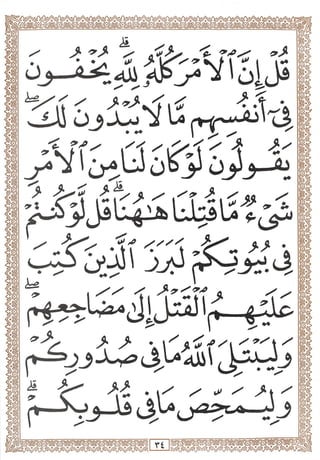 قُلْ إِنَّ ٱلْأَمْرَ كُلَّهُۥ لِلَّهِ ۗ يُخْفُونَ
فِىٓ أَنفُسِهِم مَّا لَا يُبْدُونَ لَكَ ۖ
يَقُولُونَ لَوْ كَانَ لَنَا مِنَ ٱلْأَمْرِ
شَىْءٌ مَّا قُتِلْنَا هَـٰهُنَا ۗ قُل لَّوْ كُنتُمْ
فِى بُيُوتِكُمْ لَبَرَزَ ٱلَّذِينَ كُتِبَ
عَلَيْهِمُ ٱلْقَتْلُ إِلَىٰ مَضَاجِعِهِمْ ۖ
وَلِيَبْتَلِىَ ٱللَّهُ مَا فِى صُدُورِكُمْ
وَلِيُمَحِّصَ مَا فِى قُلُوبِكُمْ ۗ
٣٤